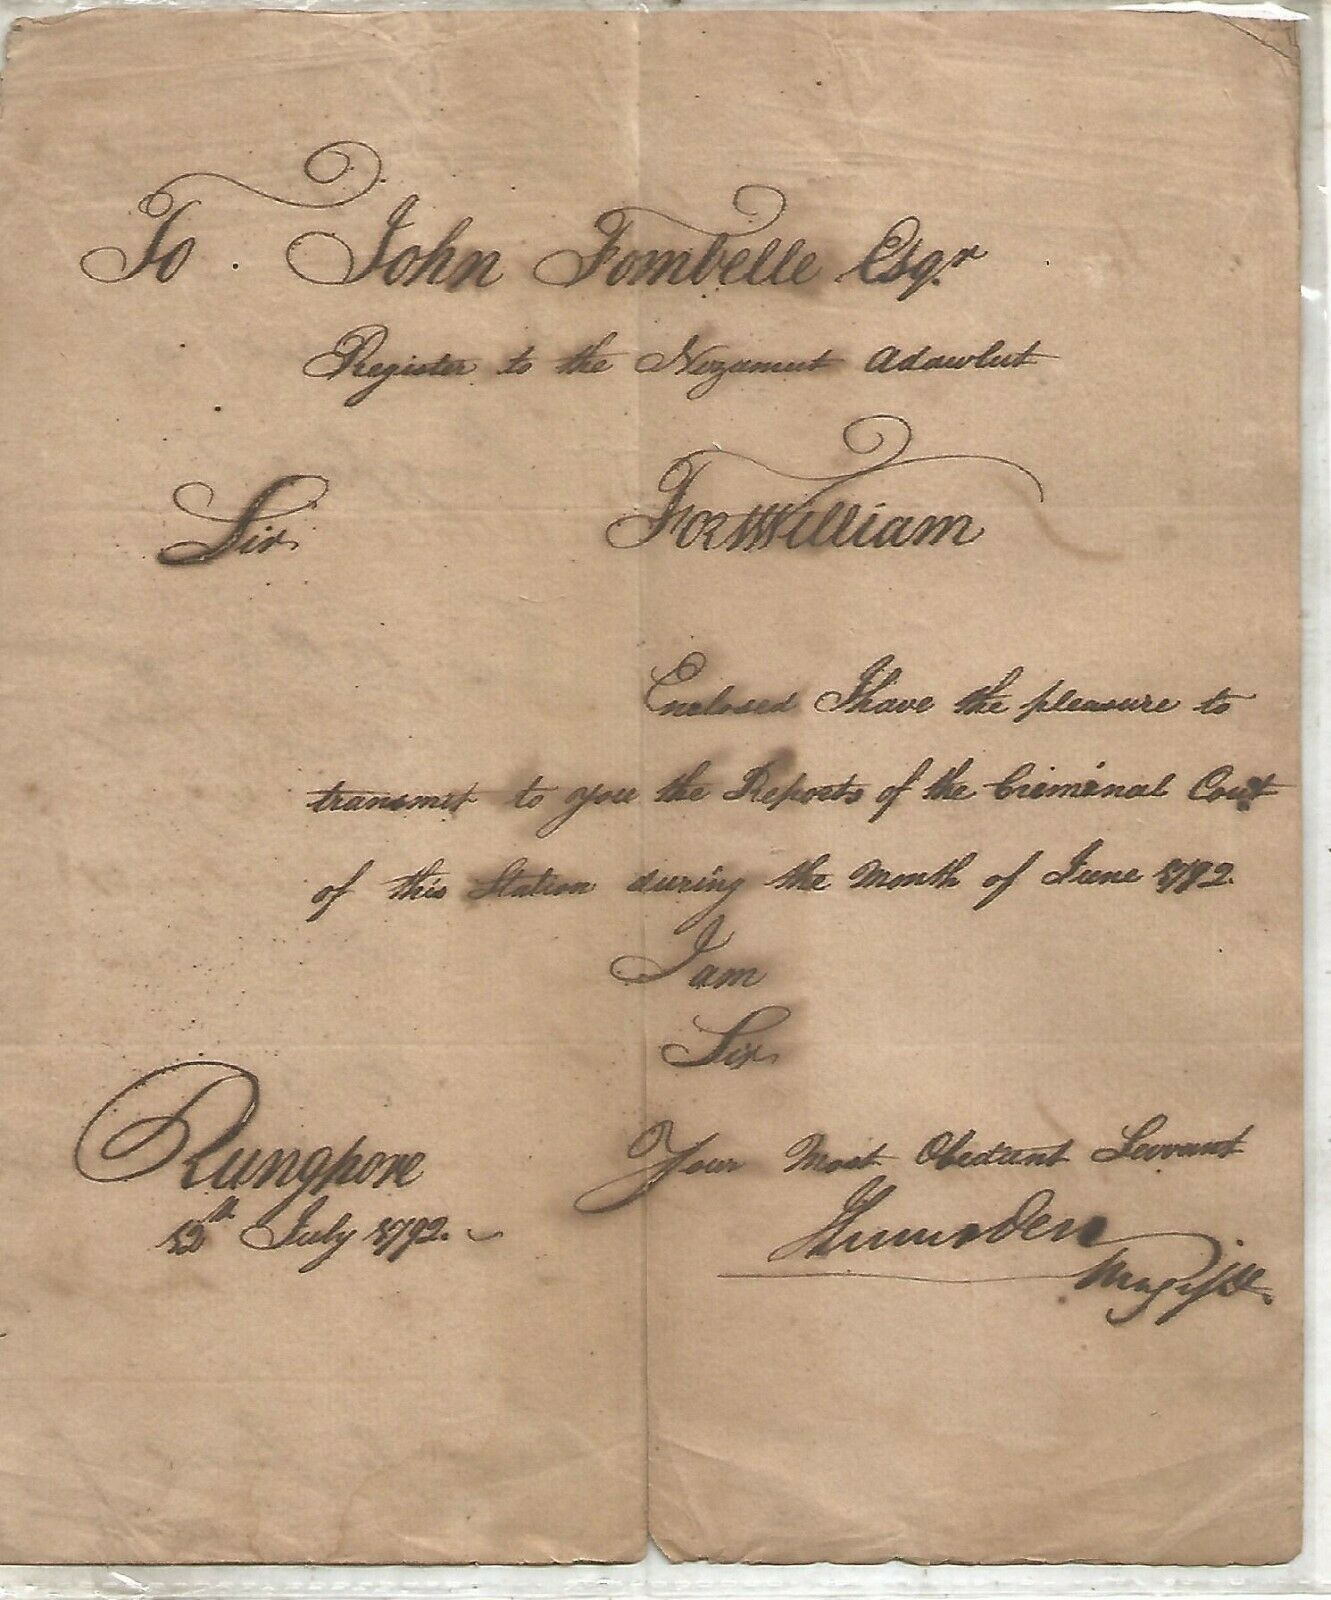 To John Fombelle Esqr
Register to the Nizamut Adawlut
Sir
Fort William
Enclosed I have the pleasure to
transmit to you the Reports of the Criminal Court
of this Station during the Month of June 1792.
I am
Sir
Your Most Obedient Servant
Lumsden
Magist.
Rungpore
12th July 1792.